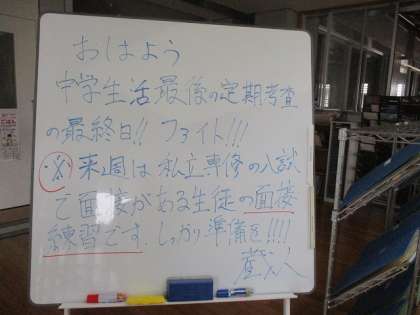 おはよう
中学生活最後の定期考査
の最終日!! ファイト!!!
※ 来週は私立専修の入試
で面接がある生徒の面接
練習です. しっかり準備を!!!!